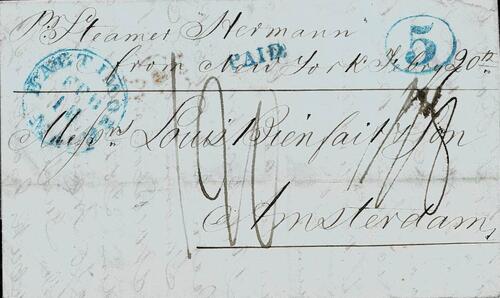 Pr Steamer Hermann
from New York Feby 20th
PAID
5
Messrs Louis Bienfait & Son
Amsterdam